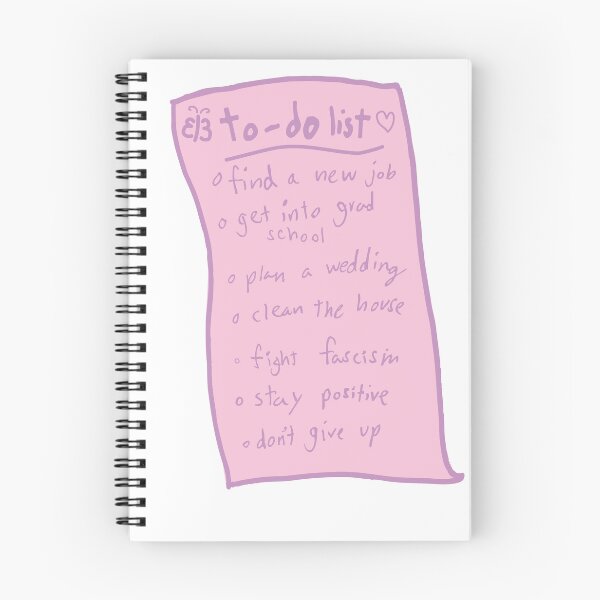 to-do list ♡
find a new job
get into grad
school
plan a wedding
clean the house
fight fascism
stay positive
don't give up